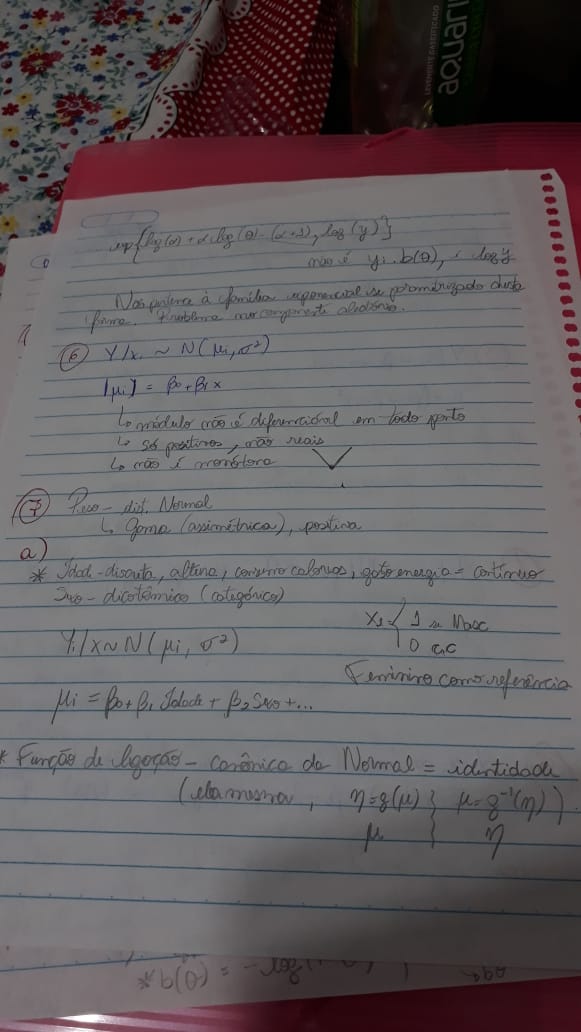 aquari
LEVEMENTE GASEIFICADO
exp{log(α) + α log(θ) - (α+1), log(y)}
não é yi.b(θ), é log y
Não pertence à família exponencial se parametrizado desta
forma. Problema no componente aleatório.
6 Y/xi ~ N(μi, σ²)
|μi| = β0 + β1 x
↳ módulo não é diferencial em todo ponto
↳ só positivos, não reais
↳ não é monótona
7 Peso - dist. Normal
↳ Gama (assimétrica), positiva
a)
* Idad - discreta, altura, consumo calorias, gasto energia = contínuo
Sexo - dicotômico (categórico)
X5 { 1 se Masc
0 c.c
Yi/x ~ N(μi, σ²)
Feminino como referência
μi = β0 + β1 Idade + β2 Sexo + ...
* Função de ligação - canônica da Normal = identidade
(ela mesma, η = g(μ) } μ = g⁻¹(η))
μ } η
b(θ) = -